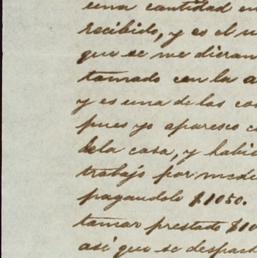 una cantidad en
recibido, y es el u
que se me dieran
tamado con la a
y es una de las co
pues yo aparesco c
dela casa, y habi
trabajo por medi
pagandole $1050.
tamar prestado $10
asi que se despach